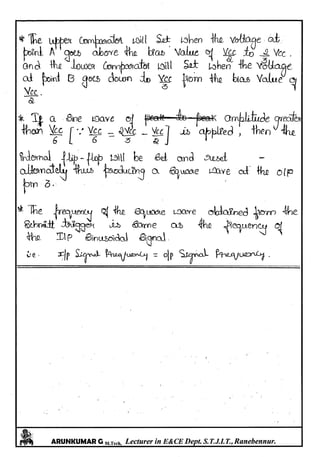 * The upper Comparator will Set when the voltage at
point A goes above the bias Value of Vcc/2 to 2/3 Vcc.
and the lower Comparator will Set when the Voltage
at point B goes down to Vcc/3 from the bias Value of
Vcc/2.
* If a Sine wave of peak-to-peak amplitude greater
than Vcc/6 [∵ Vcc/6 = 2Vcc/3 - Vcc/2] is applied, then the
internal flip-flop will be Set and reset -
alternately thus producing a Square wave at the o/p
pin 3.
* The frequency of the Square wave obtained from the
Schmitt trigger is Same as the frequency of
the I/p Sinusoidal Signal.
i.e. I/p Signal Frequency = o/p Signal Frequency.
ARUNKUMAR G M.Tech, Lecturer in E&CE Dept. S.T.J.I.T., Ranebennur.